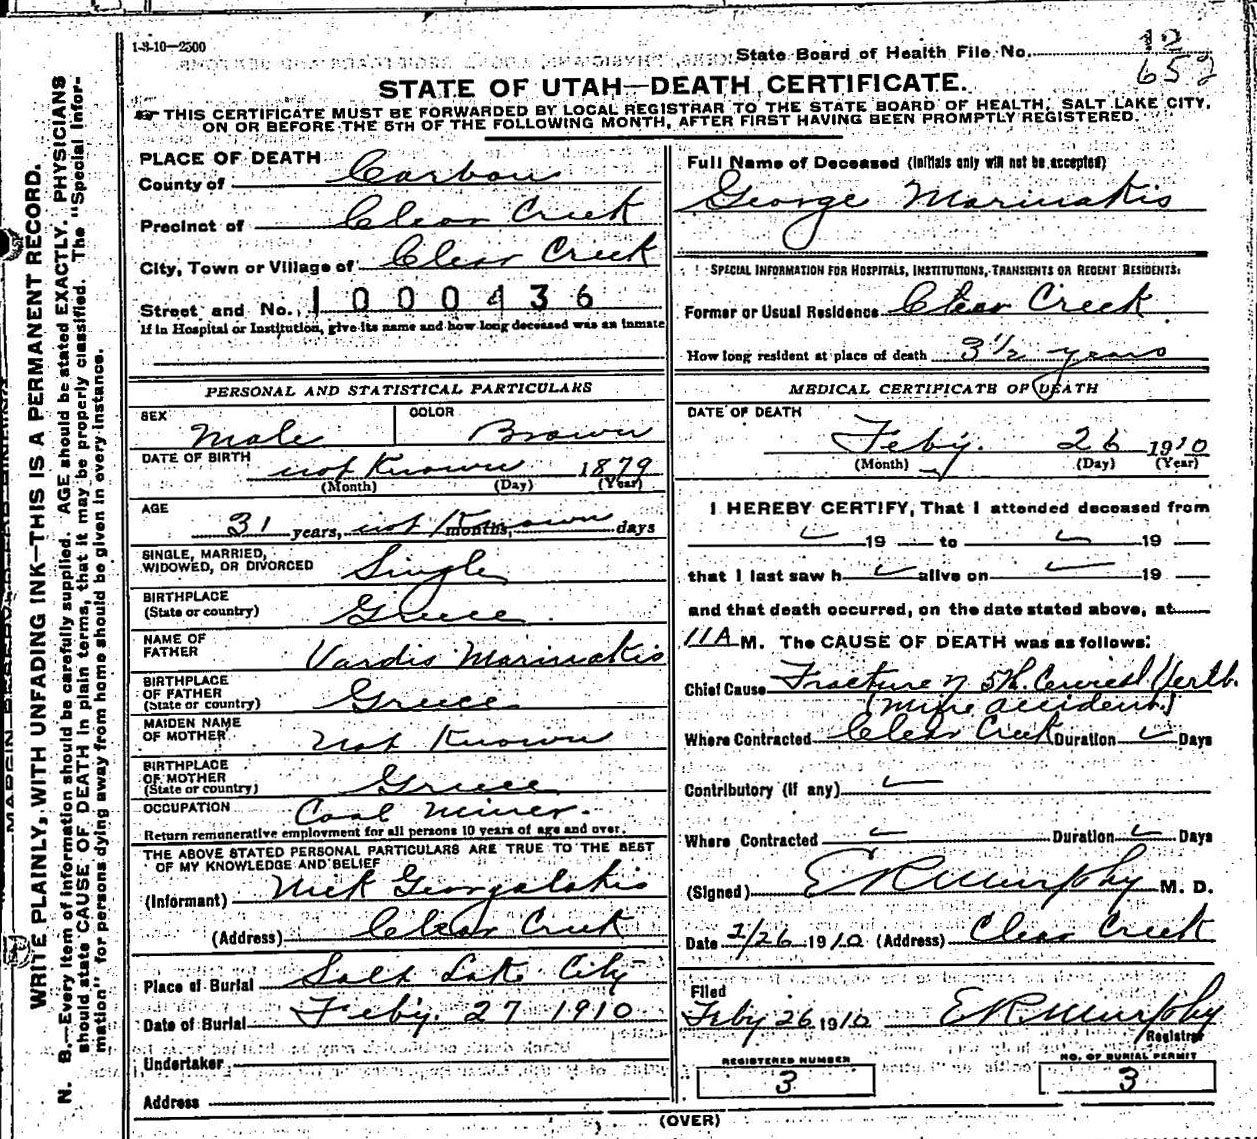 1-3-10—2500
State Board of Health File No. 12
652
STATE OF UTAH—DEATH CERTIFICATE.
THIS CERTIFICATE MUST BE FORWARDED BY LOCAL REGISTRAR TO THE STATE BOARD OF HEALTH, SALT LAKE CITY,
ON OR BEFORE THE 5TH OF THE FOLLOWING MONTH, AFTER FIRST HAVING BEEN PROMPTLY REGISTERED.
WRITE PLAINLY, WITH UNFADING INK—THIS IS A PERMANENT RECORD.
N. B.—Every item of information should be carefully supplied. AGE should be stated EXACTLY. PHYSICIANS
should state CAUSE OF DEATH in plain terms, that it may be properly classified. The "Special Infor-
mation" for persons dying away from home should be given in every instance.
PLACE OF DEATH
County of Carbon
Precinct of Clear Creek
City, Town or Village of Clear Creek
Street and No. 1000436
If in Hospital or Institution, give its name and how long deceased was an inmate
PERSONAL AND STATISTICAL PARTICULARS
SEX Male COLOR Brown
DATE OF BIRTH not Known 1879
(Month) (Day) (Year)
AGE
31 years, not Known months, days
SINGLE, MARRIED,
WIDOWED, OR DIVORCED Single
BIRTHPLACE
(State or country) Greece
NAME OF
FATHER Vardis Marinakis
BIRTHPLACE
OF FATHER
(State or country) Greece
MAIDEN NAME
OF MOTHER Not Known
BIRTHPLACE
OF MOTHER
(State or country) Greece
OCCUPATION Coal Miner.
Return remunerative employment for all persons 10 years of age and over.
THE ABOVE STATED PERSONAL PARTICULARS ARE TRUE TO THE BEST
OF MY KNOWLEDGE AND BELIEF
(Informant) Nick Georgalakis
(Address) Clear Creek
Place of Burial Salt Lake City
Date of Burial Feby. 27 1910
Undertaker
Address
Full Name of Deceased (Initials only will not be accepted)
George Marinakis
SPECIAL INFORMATION FOR HOSPITALS, INSTITUTIONS, TRANSIENTS OR RECENT RESIDENTS:
Former or Usual Residence Clear Creek
How long resident at place of death 3 1/2 years
MEDICAL CERTIFICATE OF DEATH
DATE OF DEATH
Feby. 26 1910
(Month) (Day) (Year)
I HEREBY CERTIFY, That I attended deceased from
19 to 19
that I last saw h alive on 19
and that death occurred, on the date stated above, at
11 A M. The CAUSE OF DEATH was as follows:
Chief Cause Fracture of 5th Cervical Vertb.
(Mine accident)
Where Contracted Clear Creek Duration Days
Contributory (If any)
Where Contracted Duration Days
(Signed) E R Murphy M. D.
Date 2/26 1910 (Address) Clear Creek
Filed
Feby 26 1910 E R Murphy
Registrar
REGISTERED NUMBER
3
NO. OF BURIAL PERMIT
3
(OVER)